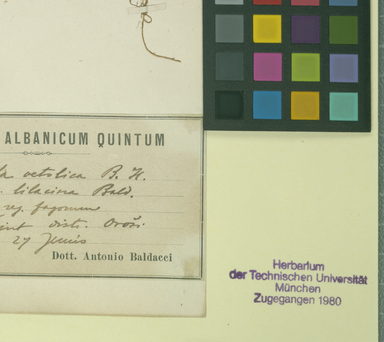 ALBANICUM QUINTUM
vetolica B. H.
lilacina Bald.
reg. fagorum
distr. Oroši
27 Junii
Dott. Antonio Baldacci
Herbarium
der Technischen Universität
München
Zugegangen 1980